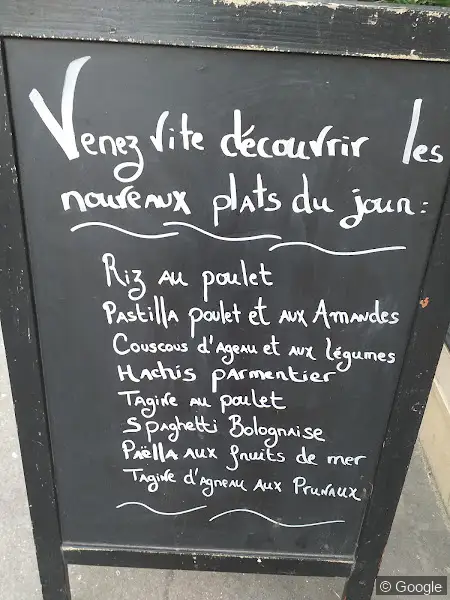 Venez vite découvrir les
nouveaux plats du jour :
Riz au poulet
Pastilla poulet et aux Amandes
Couscous d'ageau et aux légumes
Hachis parmentier
Tagine au poulet
Spaghetti Bolognaise
Paëlla aux fruits de mer
Tagine d'agneau aux Prunaux
© Google